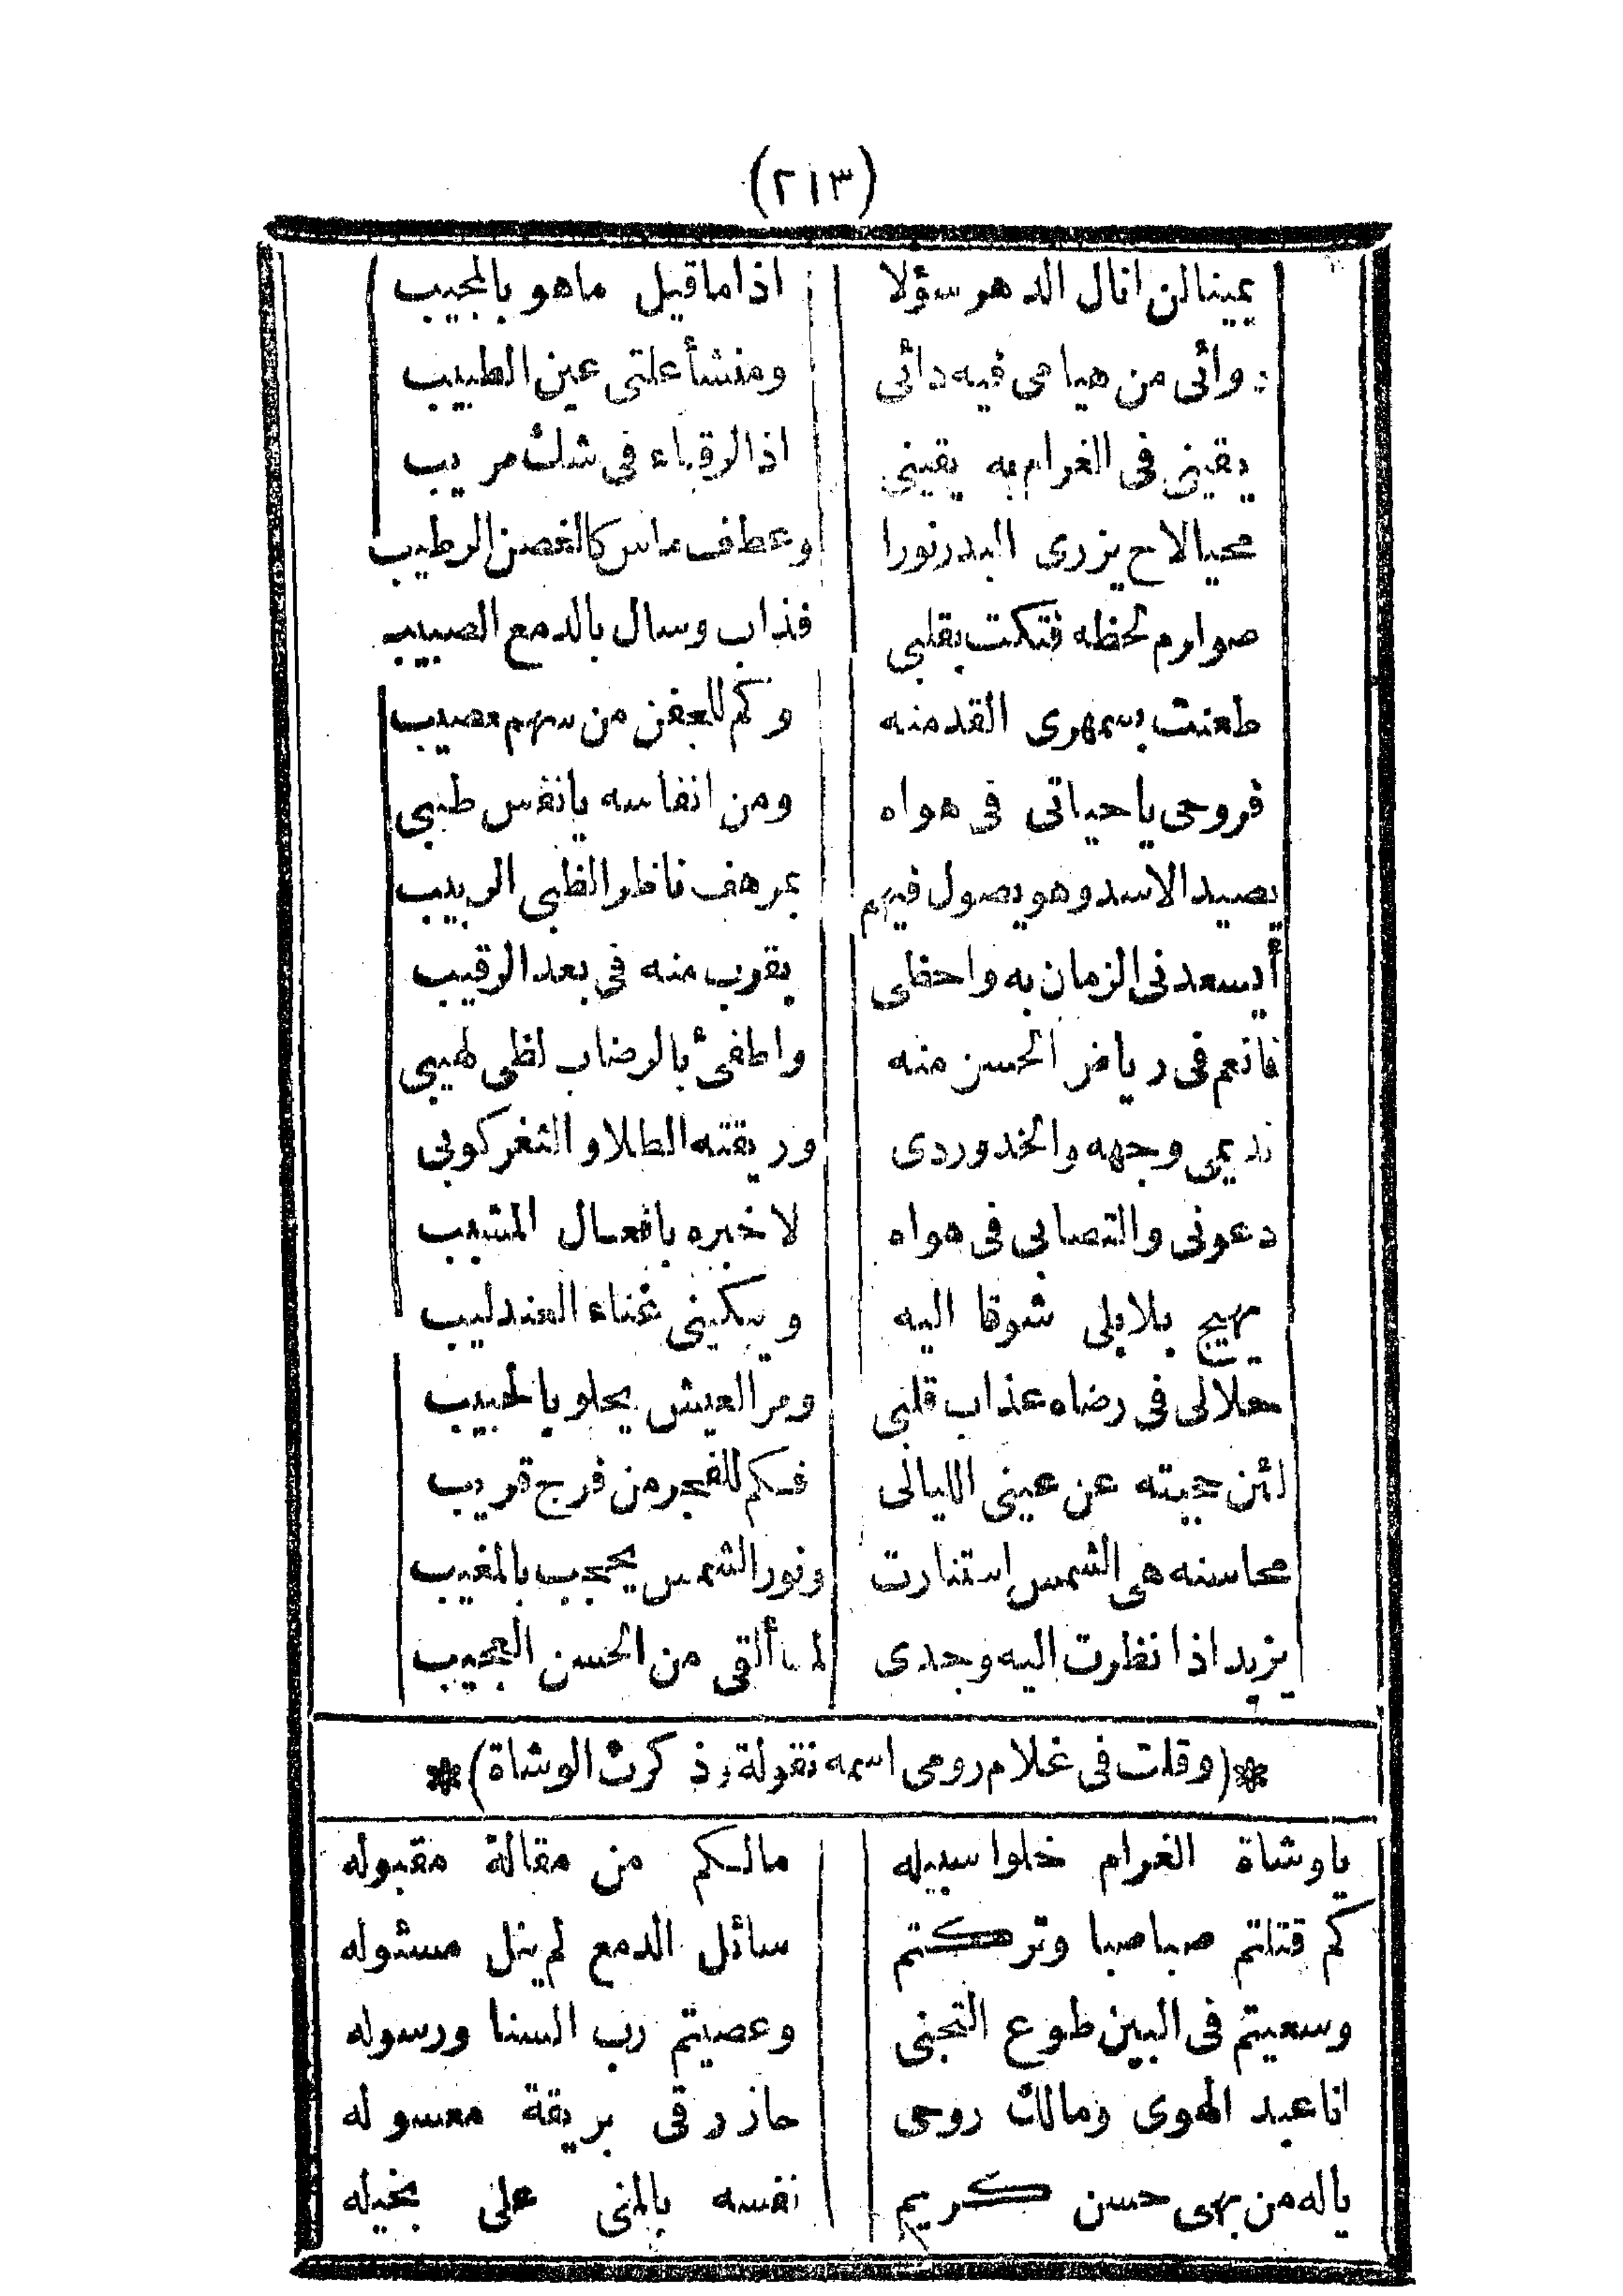 (٢١٣)
يمينا لن انال الدهر سؤلا اذا ما قيل ما هو بالمجيب
دوائى من هيامى فيه دائى ومنشأ علتى عين الطبيب
يقينى فى الغرام به يقينى اذ الرقباء فى شك مريب
محيا لاح يزرى البدر نورا وعطف ماس كالغصن الرطيب
صوارم لحظه فتكت بقلبى فذاب وسال بالدمع الصبيب
طعنت بسمهرى القد منه وكم للجفن من سهم مصيب
فروحى يا حياتى فى هواه ومن انفاسه يا نفس طيبى
يصيد الاسد وهو يصول فيهم بمرهف ناظر الظبى الربيب
أيسعدنى الزمان به واحظى بقرب منه فى بعد الرقيب
فانعم فى رياض الحسن منه واطفئ بالرضاب لظى لهيبى
نديمى وجهه والخد وردى وريقته الطلا والثغر كوبى
دعونى والتصابى فى هواه لاخبره بافعال المشيب
يهيج بلابلى شوقا اليه ويبكينى غناء العندليب
حلا لى فى رضاه عذاب قلبى ومر العيش يحلو بالحبيب
لئن حجبته عن عينى الليالى فكم للفجر من فرج قريب
محاسنه هى الشمس استنارت ونور الشمس يحجب بالمغيب
يزيد اذا نظرت اليه وجدى لما ألقى من الحسن العجيب
*(وقلت فى غلام رومى اسمه نقولة وذكرت الوشاة)*
يا وشاة الغرام خلوا سبيله مالكم من مقالة مقبوله
كم قتلتم صبا صبا وتركتم سائل الدمع لم ينل مسئوله
وسعيتم فى البين طوع التجنى وعصيتم رب السنا ورسوله
انا عبد الهوى ومالك روحى حاز رقى بريقة معسوله
ياله من بهى حسن كريم نفسه بالمنى على بخيله